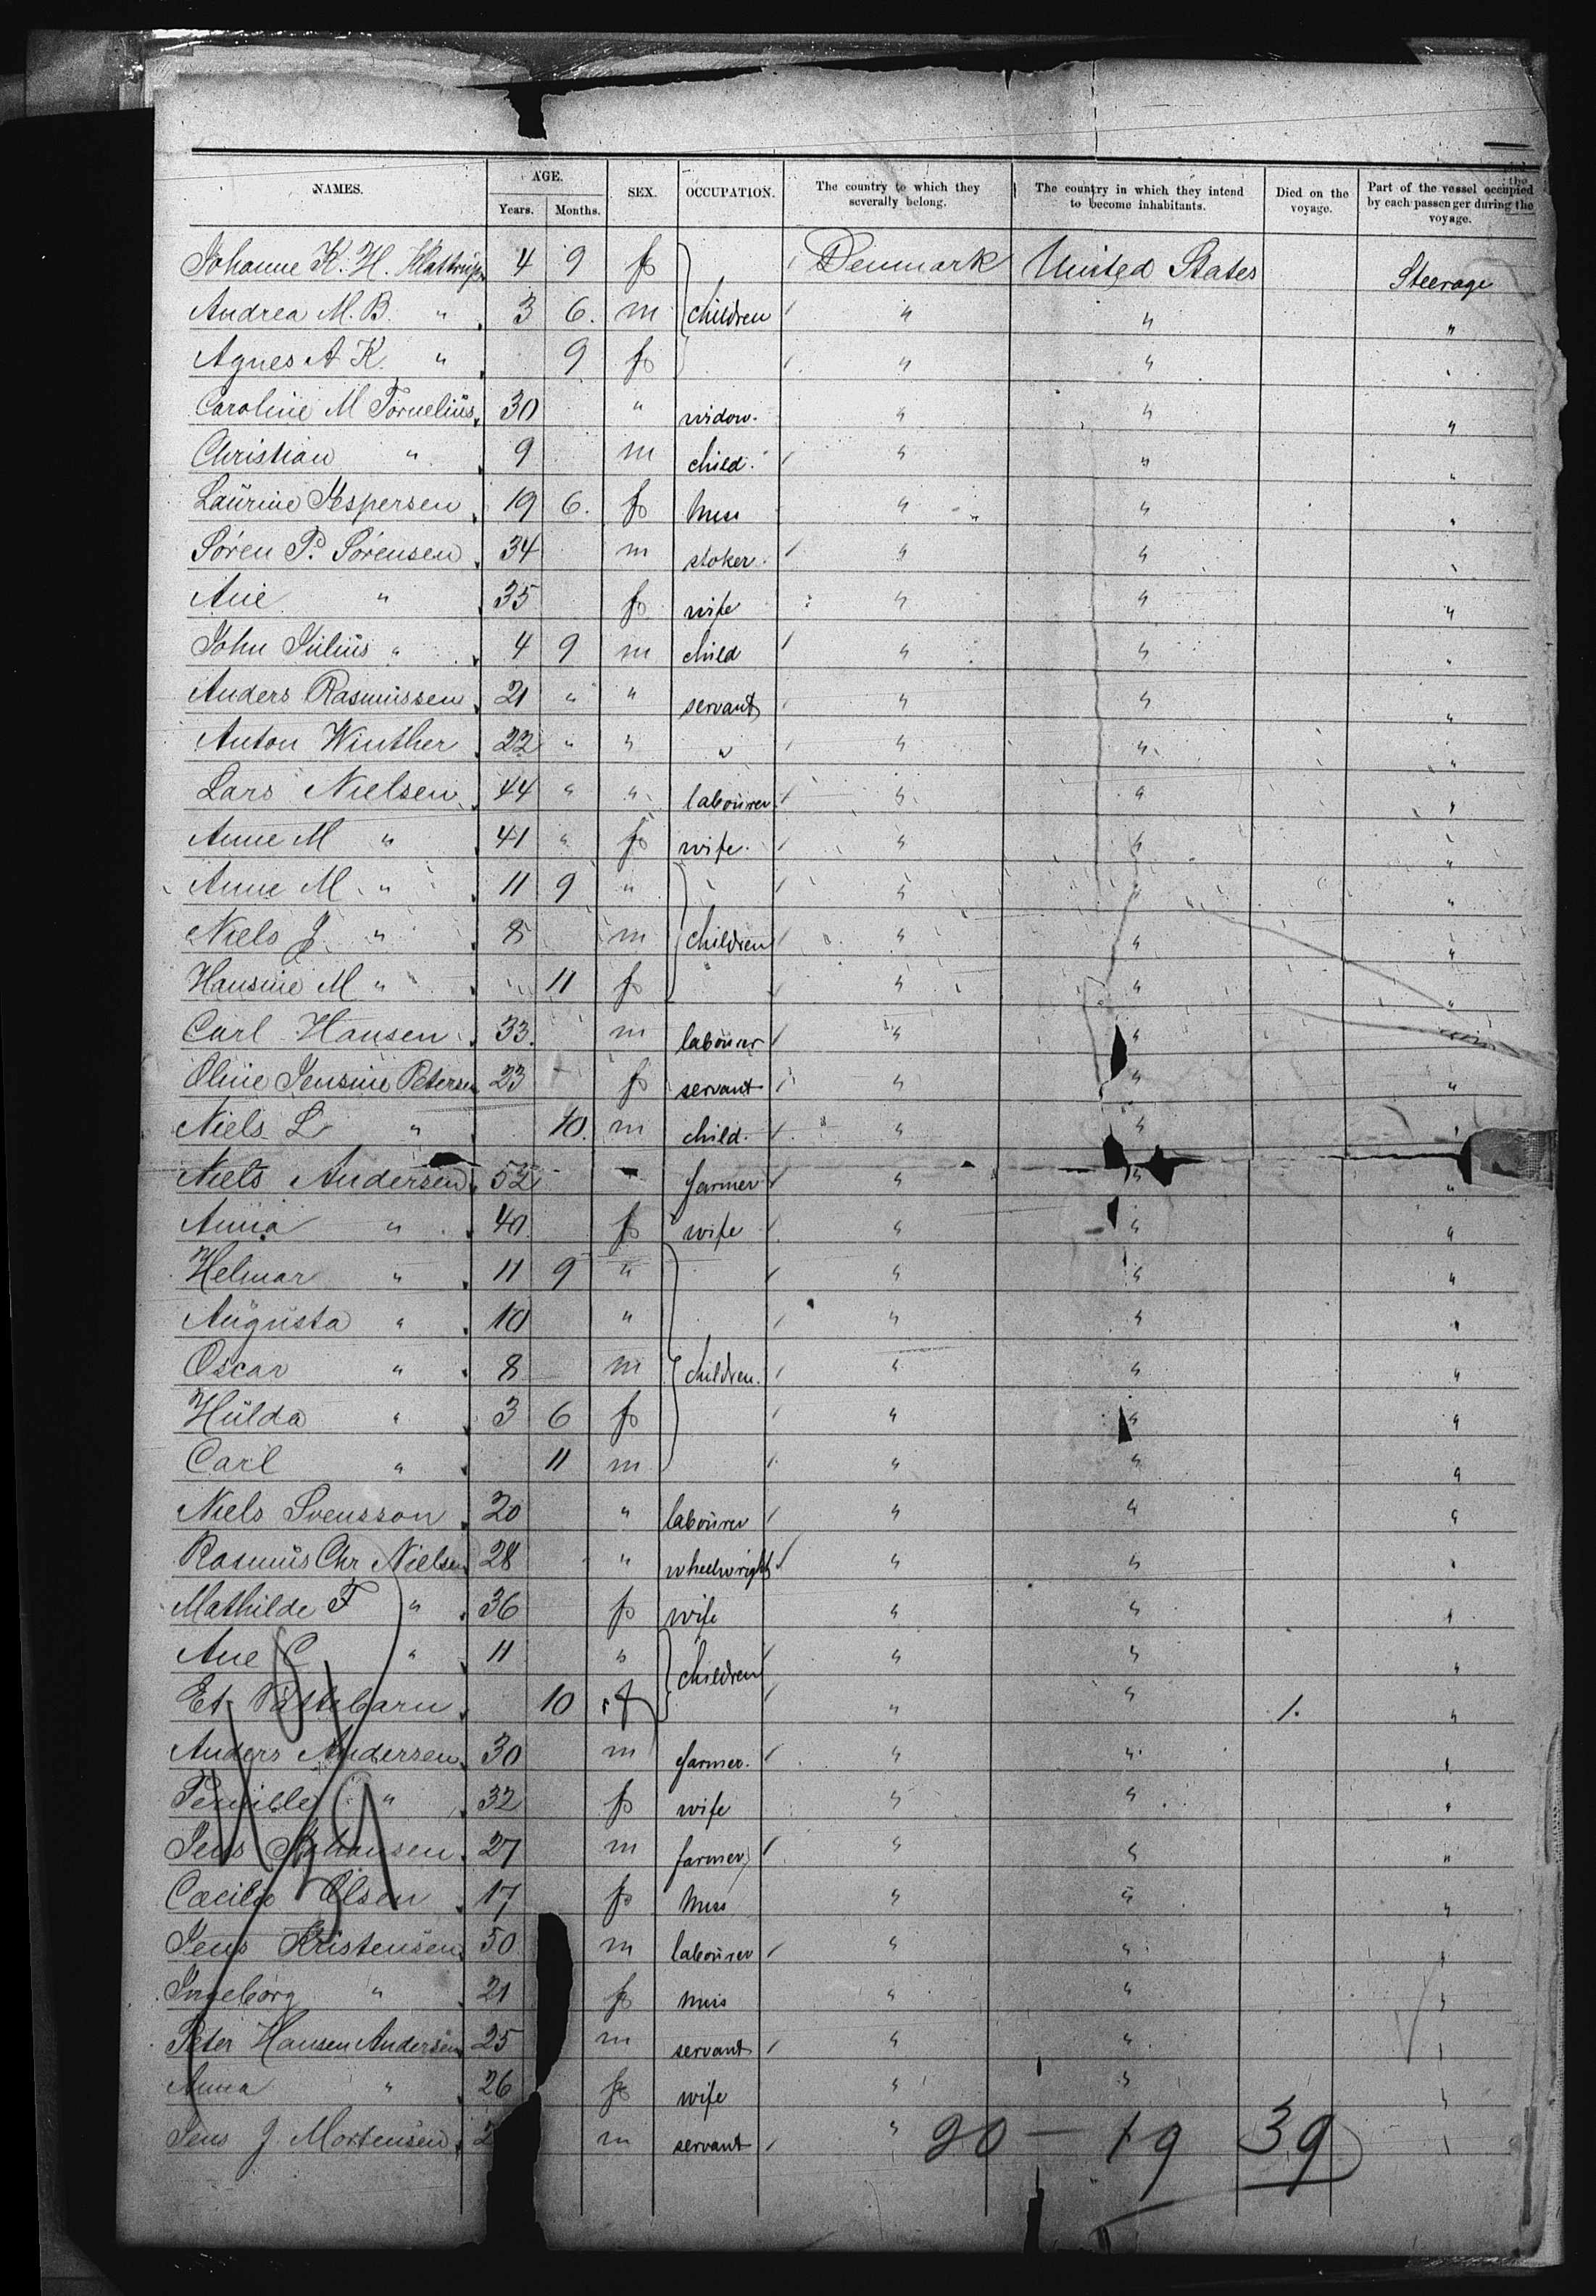 NAMES. AGE. Years. Months. SEX. OCCUPATION. The country to which they severally belong. The country in which they intend to become inhabitants. Died on the voyage. Part of the vessel occupied by each passenger during the voyage.
Johanne K. H. Klattrup 4 9 f Denmark United States Steerage
Andrea M. B. " 3 6. m children " " "
Agnes A K. " 9 f " "
Caroline M Tornelius 30 " widow. " " "
Christian " 9 m child. " " "
Laurine Jespersen 19 6. f Miss " " "
Sören P. Sörensen 34 m stoker. " " "
Ane " 35 f wife " " "
John Julius " 4 9 m child " " "
Anders Rasmussen 21 " " servant " " "
Anton Winther 22 " " " " " "
Lars Nielsen 44 " " labourer " " "
Anne M " 41 " f wife. " " "
Anne M " 11 9 " " " "
Niels J. " 8 m children " " "
Hansine M " 11 f " " "
Carl Hansen 33. m labourer " "
Oline Jensine Petersen 23 f servant " " "
Niels L " 10. m child. " " "
Niels Andersen 52 " farmer " " "
Anna " 40 f wife " " "
Helmar " 11 9 " " " "
Augusta " 10 " " " "
Oscar " 8 m children. " " "
Hülda " 3 6 f " " "
Carl " 11 m " " "
Niels Svensson 20 " labourer " " "
Rasmüs Chr Nielsen 28 " wheelwright " " "
Mathilde F " 36 f wife " " "
Ane C " 11 " children " " "
Et 10 f " " 1. "
Anders Andersen 30 m farmer. " " "
Pernille " 32 f wife " " "
Jens Johansen 27 m farmer " " "
Cæcilie Olsen 17 f Miss " " "
Jens Kristensen 50 m labourer " " "
Ingeborg " 21 f Miss " " "
Peter Hansen Andersen 25 m servant " " "
Anna " 26 f wife " " "
Jens J. Mortensen 2 m servant " 20 — 19 39